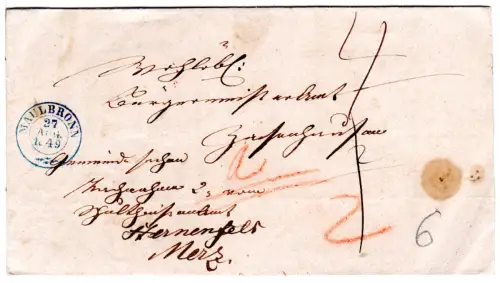 MAULBRONN
27
1849
Wohllöbl:
Bürgermeisteramt
Zaisenhausen
Gemeinde sachen
2, vom
Schultheissenamt
Sternenfels
Merz.
6